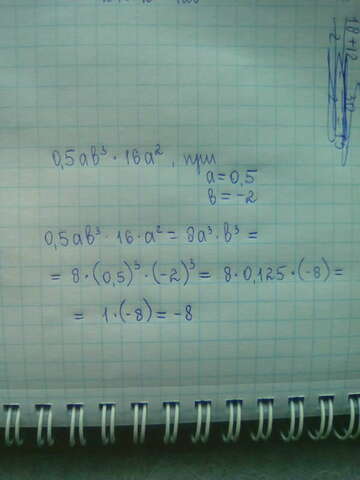 0,5ab³ · 16a², при
a = 0,5
b = -2
0,5ab³ · 16 · a² = 8a³ · b³ =
= 8 · (0,5)³ · (-2)³ = 8 · 0,125 · (-8) =
= 1 · (-8) = -8
18+12